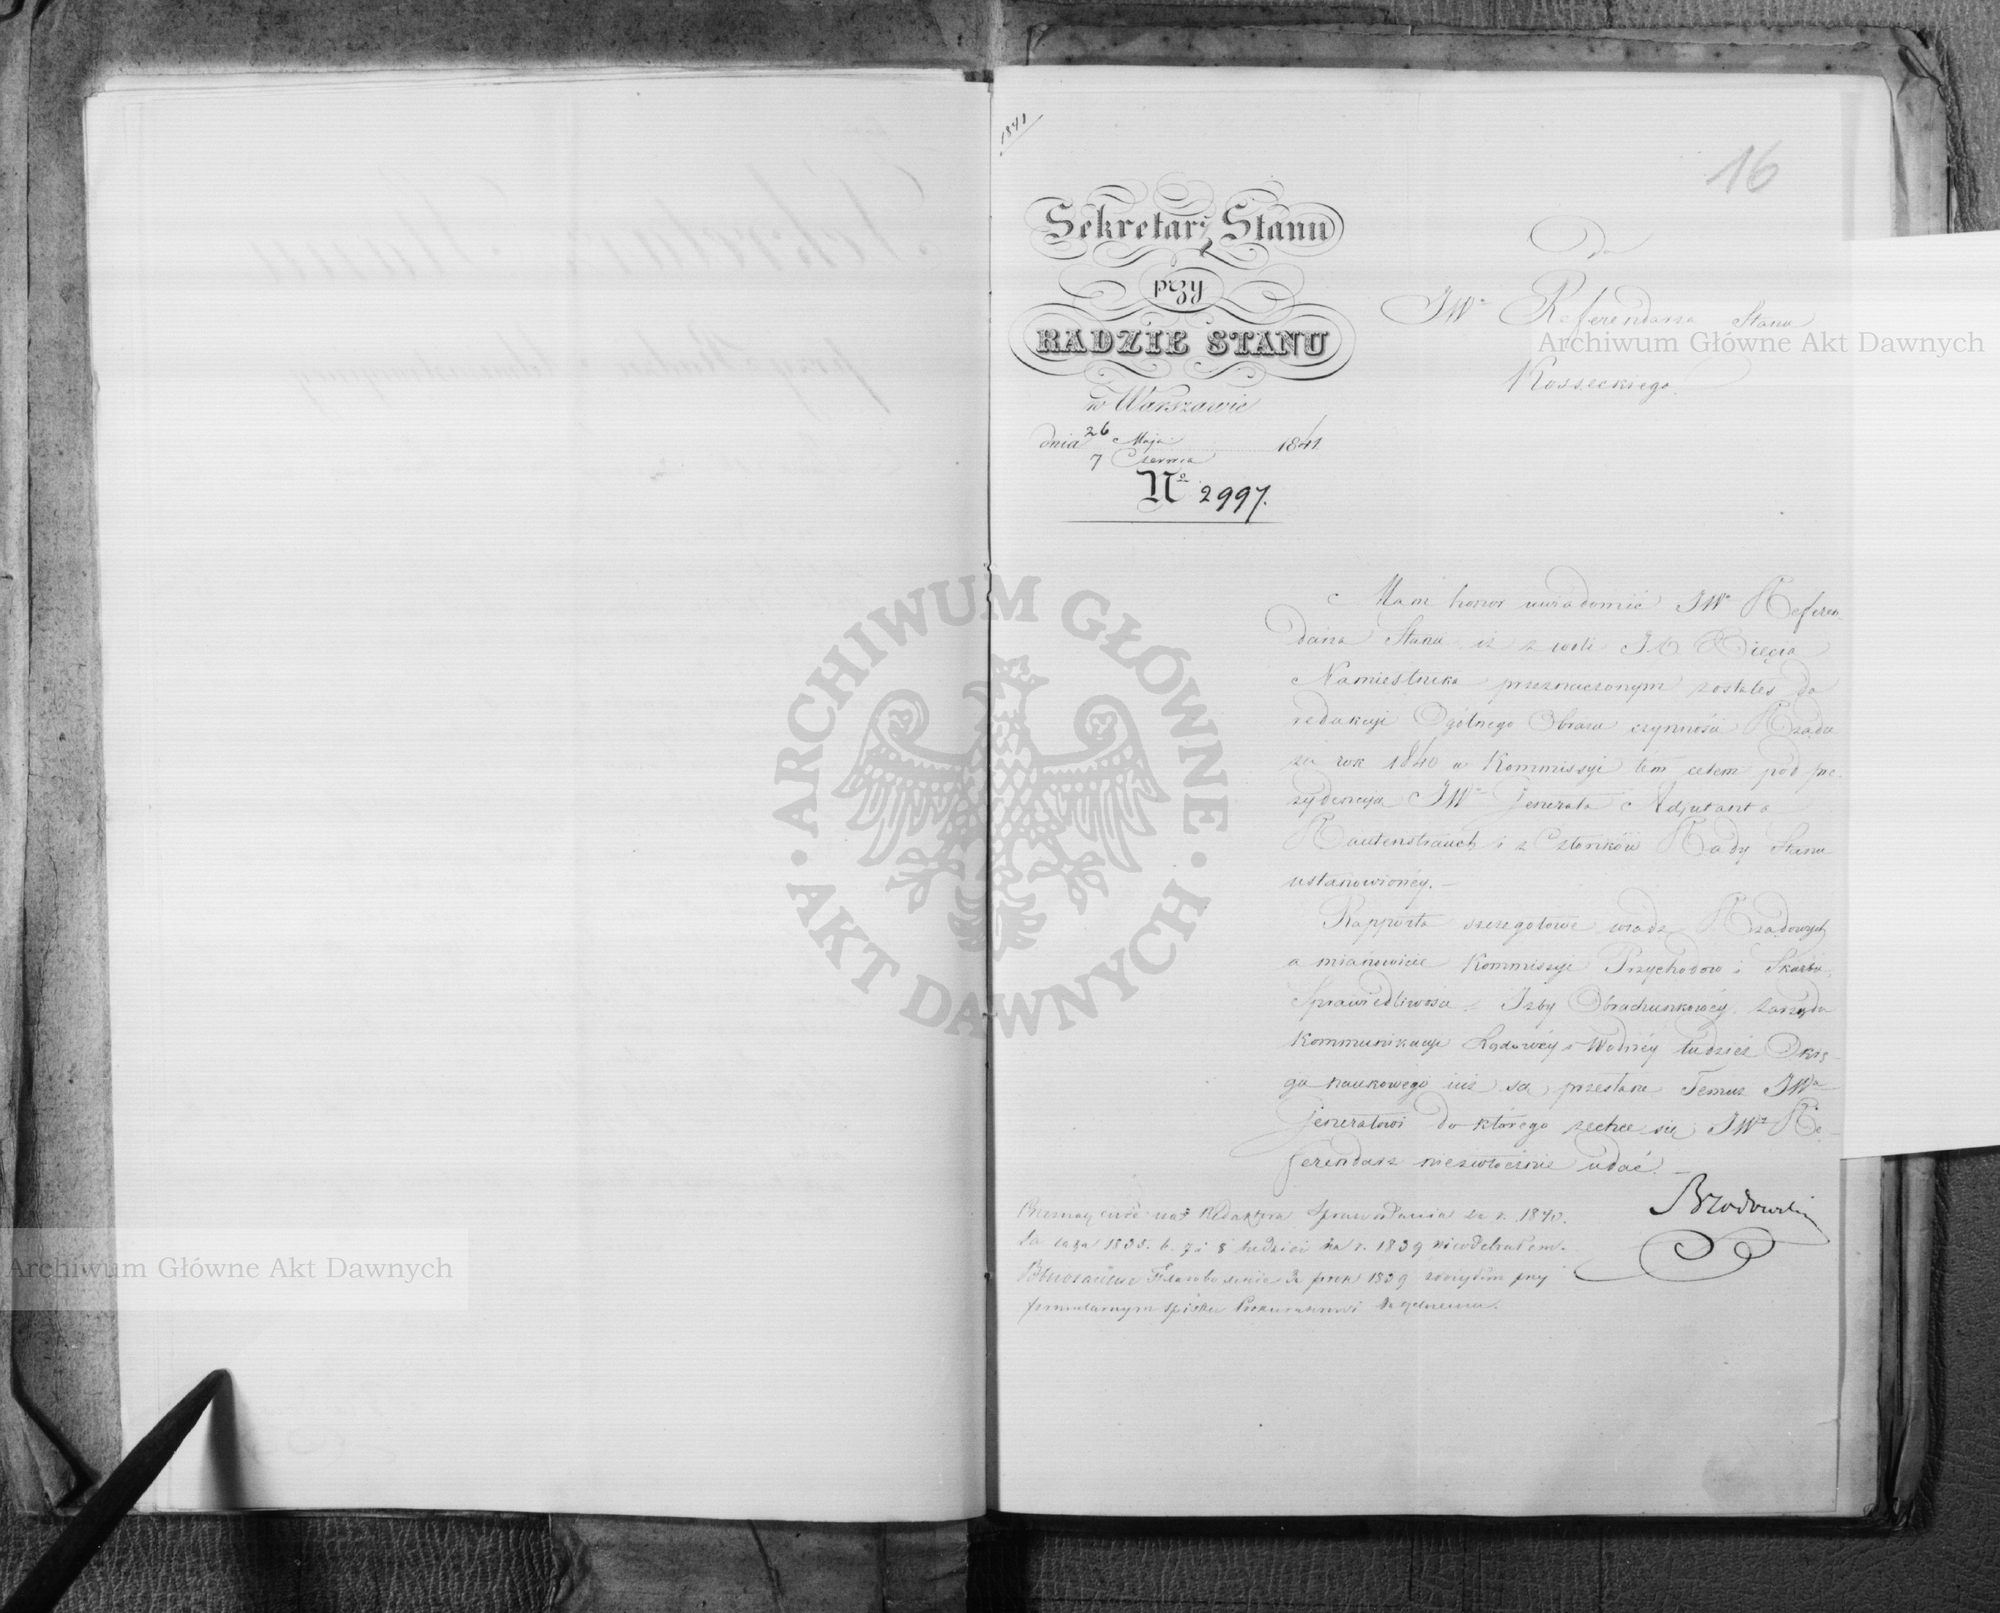 1841
16
Sekretarz Stanu
przy
RADZIE STANU
w Warszawie
dnia 26 Maja 1841
7 Czerwca
No 2997.
Do
JWo Referendarza Stanu
Kosseckiego
Mam honor uwiadomić JWo Referen-
darza Stanu iż z woli JO Xięcia
Namiestnika przeznaczonym zostałeś do
redakcji Ogólnego Obrazu czynności Rządu
za rok 1840 w Kommissyi tem celem pod pre-
zydencyą JWo Jenerała Adjutanta
Rautenstrauch i z Członków Rady Stanu
ustanowionéy.—
Rapporta szczegółowe władz Rządowych
a mianowicie Kommissyi Przychodów i Skarbu,
Sprawiedliwości – Izby Obrachunkowéy, Zarządu
Kommunikacyi Lądowéy i Wodnéy tudzież Okrę-
gu naukowego już są przesłane Temuż JWo
Jenerałowi do którego zechce się JWo Re-
ferendarz niezwłocznie udać.—
Brzodowski
Redaktora Sprawozdania za r. 1840.
za lata 1835. 6. 7 i 8 tudzież za r. 1839 nieodebrałem.
1839 przy
formularnym spisku
ARCHIWUM GŁÓWNE
AKT DAWNYCH
Archiwum Główne Akt Dawnych
Archiwum Główne Akt Dawnych